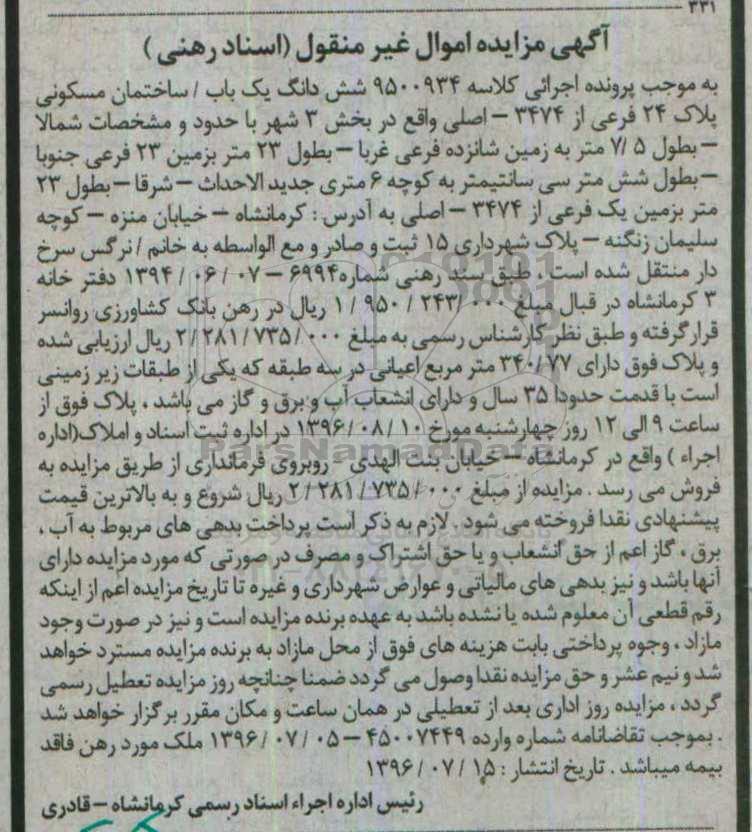 ۳۳۱
آگهی مزایده اموال غیر منقول (اسناد رهنی)
به موجب پرونده اجرائی کلاسه ۹۵۰۰۹۳۴ شش دانگ یک باب / ساختمان مسکونی
پلاک ۲۴ فرعی از ۳۴۷۴ – اصلی واقع در بخش ۳ شهر با حدود و مشخصات شمالا
– بطول ۷/۵ متر به زمین شانزده فرعی غربا – بطول ۲۳ متر بزمین ۲۳ فرعی جنوبا
– بطول شش متر سی سانتیمتر به کوچه ۶ متری جدید الاحداث – شرقا – بطول ۲۳
متر بزمین یک فرعی از ۳۴۷۴ – اصلی به آدرس : کرمانشاه – خیابان منزه – کوچه
سلیمان زنگنه – پلاک شهرداری ۱۵ ثبت و صادر و مع الواسطه به خانم / نرگس سرخ
دار منتقل شده است ، طبق سند رهنی شماره ۶۹۹۴ – ۰۷ / ۰۶ / ۱۳۹۴ دفتر خانه
۳ کرمانشاه در قبال مبلغ ۰۰۰ / ۲۴۳ / ۹۵۰ / ۱ ریال در رهن بانک کشاورزی روانسر
قرار گرفته و طبق نظر کارشناس رسمی به مبلغ ۰۰۰ / ۷۳۵ / ۲۸۱ / ۲ ریال ارزیابی شده
و پلاک فوق دارای ۳۴۰/۷۷ متر مربع اعیانی در سه طبقه که یکی از طبقات زیر زمینی
است با قدمت حدودا ۳۵ سال و دارای انشعاب آب و برق و گاز می باشد ، پلاک فوق از
ساعت ۹ الی ۱۲ روز چهارشنبه مورخ ۱۰ / ۰۸ / ۱۳۹۶ در اداره ثبت اسناد و املاک (اداره
اجراء ) واقع در کرمانشاه – خیابان بنت الهدی – روبروی فرمانداری از طریق مزایده به
فروش می رسد . مزایده از مبلغ ۰۰۰ / ۷۳۵ / ۲۸۱ / ۲ ریال شروع و به بالاترین قیمت
پیشنهادی نقدا فروخته می شود . لازم به ذکر است پرداخت بدهی های مربوط به آب ،
برق ، گاز اعم از حق انشعاب و یا حق اشتراک و مصرف در صورتی که مورد مزایده دارای
آنها باشد و نیز بدهی های مالیاتی و عوارض شهرداری و غیره تا تاریخ مزایده اعم از اینکه
رقم قطعی آن معلوم شده یا نشده باشد به عهده برنده مزایده است و نیز در صورت وجود
مازاد ، وجوه پرداختی بابت هزینه های فوق از محل مازاد به برنده مزایده مسترد خواهد
شد و نیم عشر و حق مزایده نقدا وصول می گردد ضمنا چنانچه روز مزایده تعطیل رسمی
گردد ، مزایده روز اداری بعد از تعطیلی در همان ساعت و مکان مقرر برگزار خواهد شد
. بموجب تقاضانامه شماره وارده ۴۵۰۰۷۴۴۹ – ۰۵ / ۰۷ / ۱۳۹۶ ملک مورد رهن فاقد
بیمه میباشد . تاریخ انتشار : ۱۵ / ۰۷ / ۱۳۹۶
رئیس اداره اجراء اسناد رسمی کرمانشاه – قادری
ParsNamadData